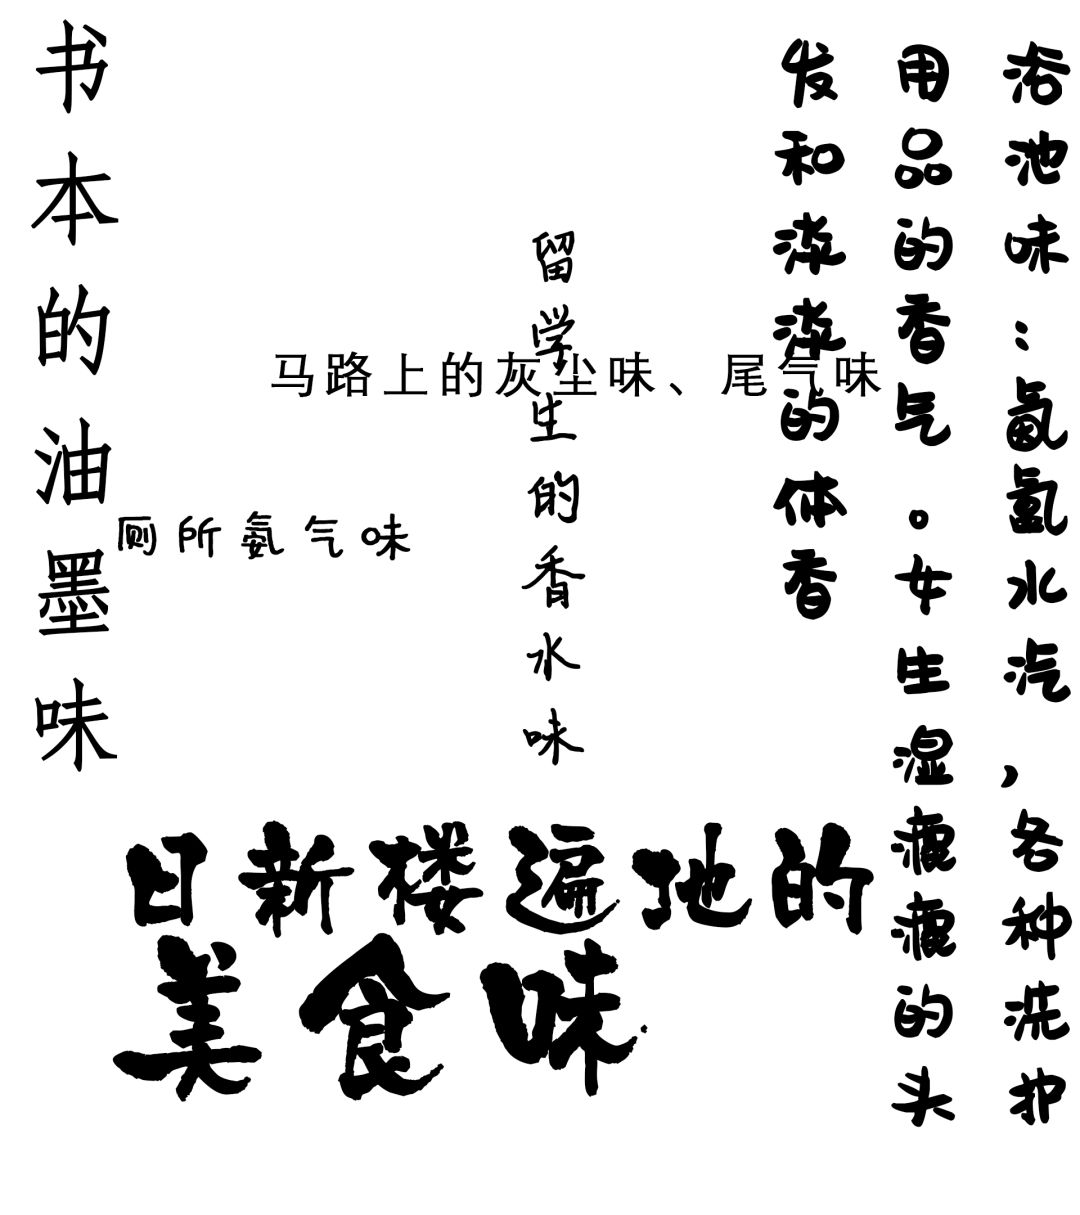 浴池味：氤氲水汽，各种洗护
用品的香气。女生湿漉漉的头
发和淡淡的体香
留学生的香水味
马路上的灰尘味、尾气味
厕所氨气味
书本的油墨味
日新楼遍地的
美食味